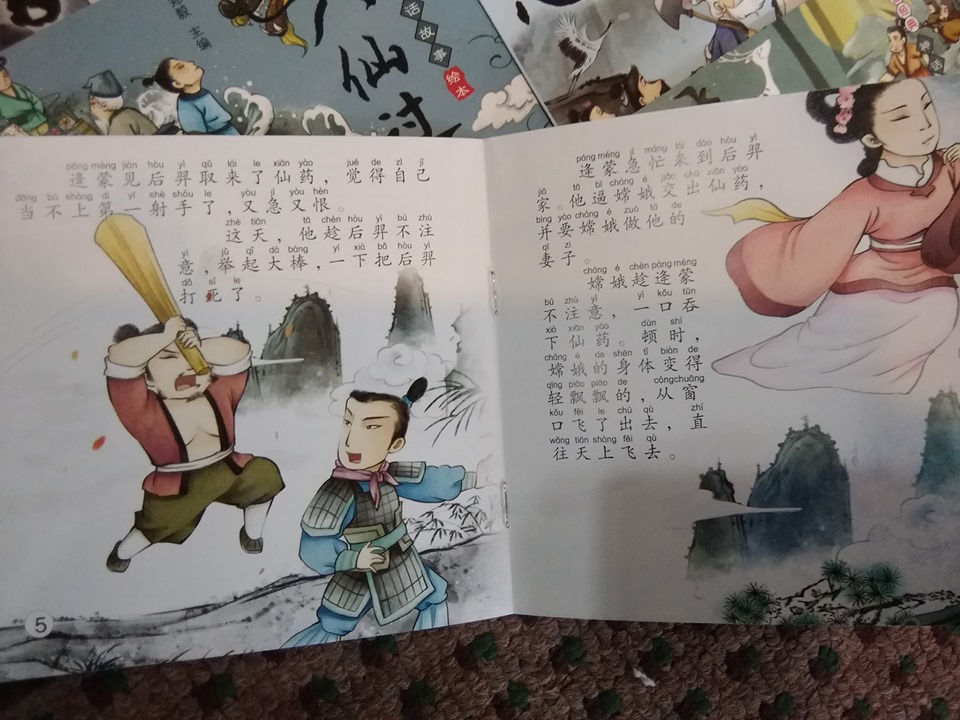 毅 主编
话故事
绘本
仙过
páng méng jiàn hòu yì qǔ lái le xiān yào jué de zì jǐ
逢蒙见后羿取来了仙药，觉得自己
dāng bú shàng dì yī shè shǒu le yòu jí yòu hèn
当不上第一射手了，又急又恨。
zhè tiān tā chèn hòu yì bú zhù
这天，他趁后羿不注
yì jǔ qǐ dà bàng yí xià bǎ hòu yì
意，举起大棒，一下把后羿
dǎ sǐ le
打死了。
5
páng méng jí máng lái dào hòu yì
逢蒙急忙来到后羿
jiā tā bī cháng é jiāo chū xiān yào
家。他逼嫦娥交出仙药，
bìng yào cháng é zuò tā de
并要嫦娥做他的
qī zi
妻子。
cháng é chèn páng méng
嫦娥趁逢蒙
bú zhù yì yì kǒu tūn
不注意，一口吞
xià xiān yào dùn shí
下仙药。顿时，
cháng é de shēn tǐ biàn de
嫦娥的身体变得
qīng piāo piāo de cóng chuāng
轻飘飘的，从窗
kǒu fēi le chū qù zhí
口飞了出去，直
wǎng tiān shàng fēi qù
往天上飞去。